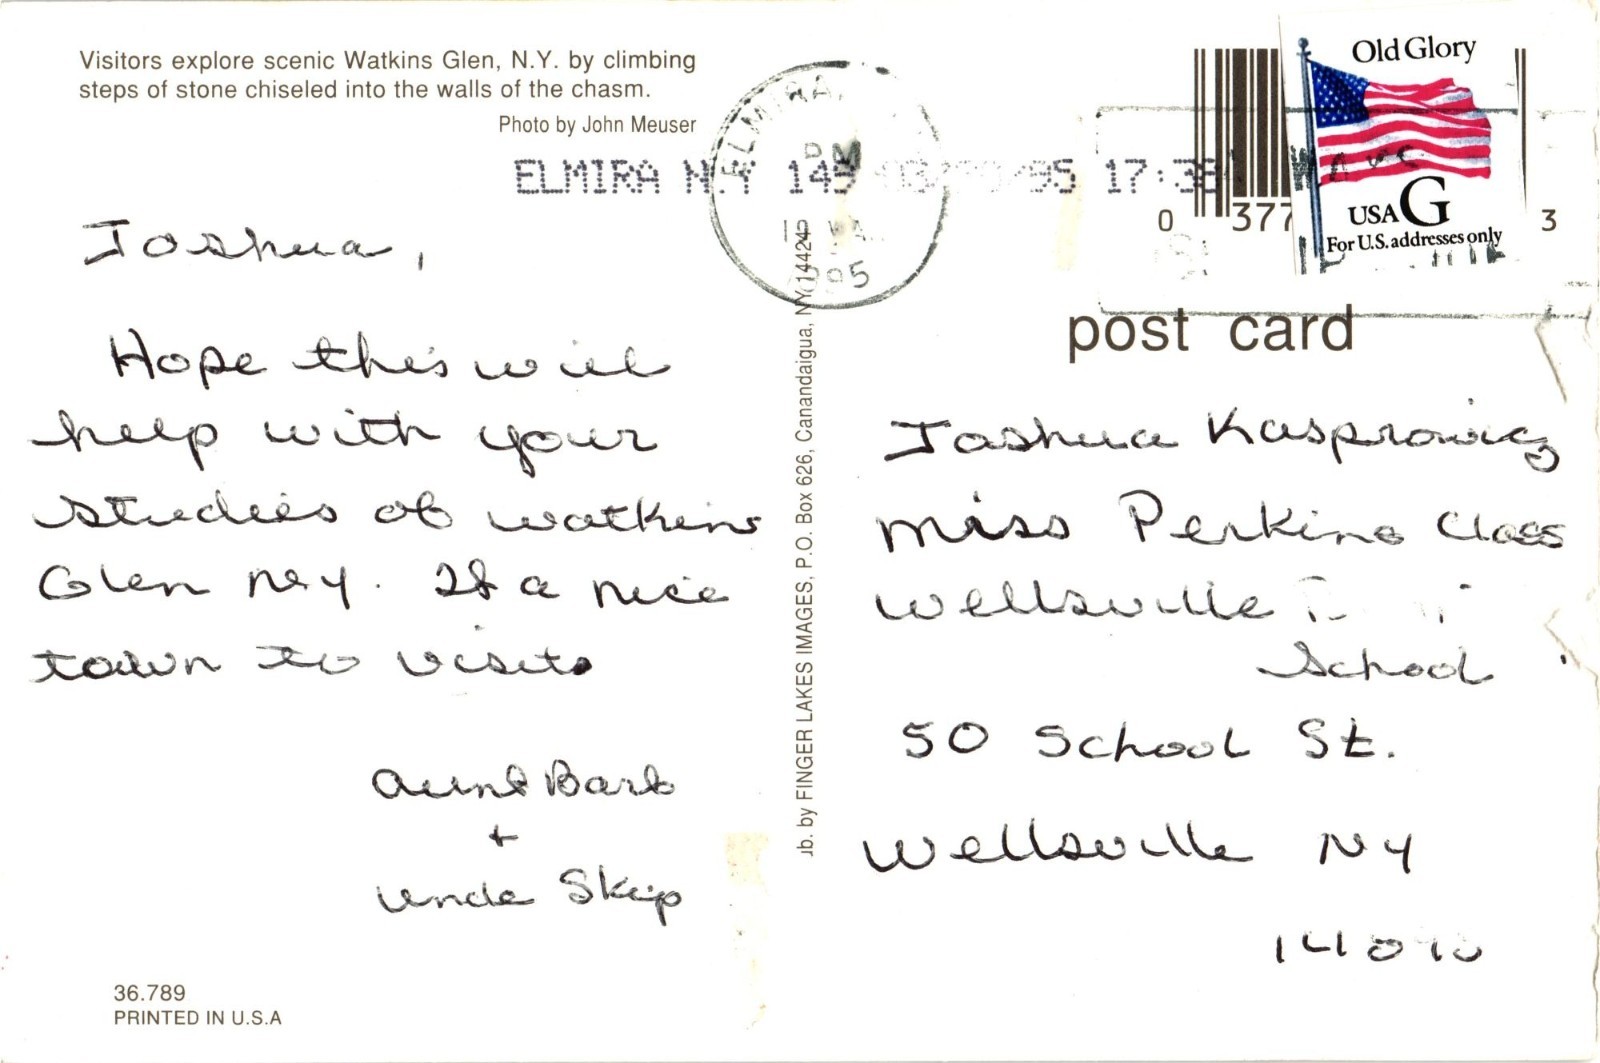 Visitors explore scenic Watkins Glen, N.Y. by climbing
steps of stone chiseled into the walls of the chasm.
Photo by John Meuser
ELMIRA N.Y 149 95 17:38
ELMIRA,
PM
1995
Old Glory
USA G
For U.S. addresses only
0 377 3
post card
Joshua,
Hope this will
help with your
studies of watkins
Glen N.Y. If a nice
town to visits
Aunt Barb
+
Uncle Skip
36.789
PRINTED IN U.S.A
ub. by FINGER LAKES IMAGES, P.O. Box 626, Canandaigua, NY 14424
Joshua Kasprowicz
Miss Perkins Class
Wellsville
School
50 School St.
Wellsville NY